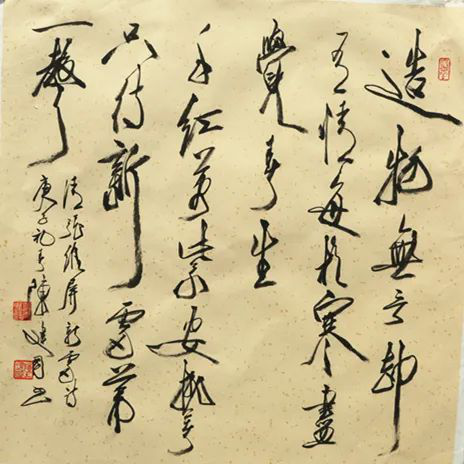 造物無言却
有情每於寒盡
覺春生
千紅萬紫安排著
只待新雷第
一聲
清張維屏新雷詩
庚子初春陳书